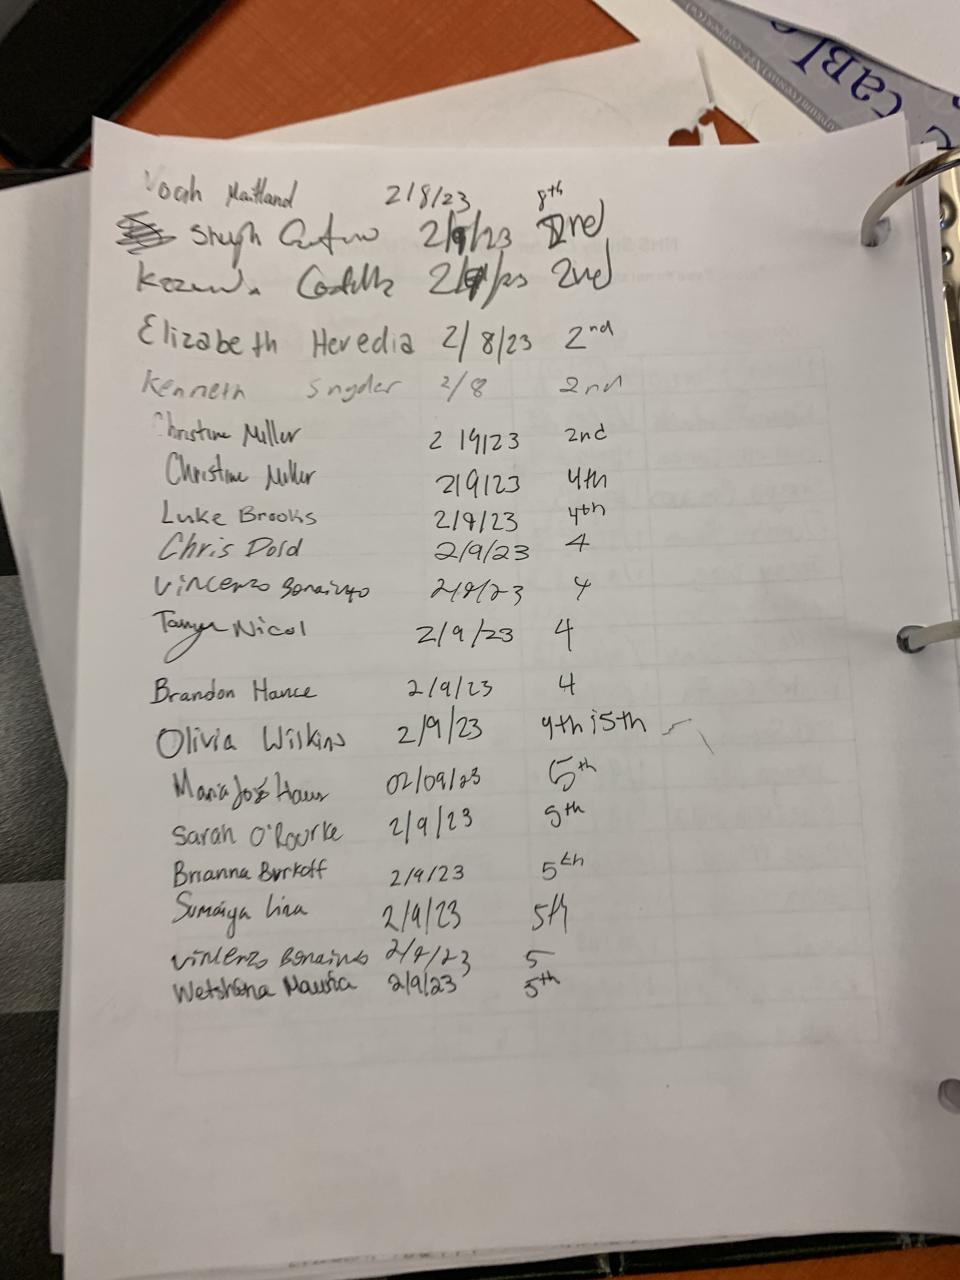 cable
Noah Maitland 2/8/23 8th
2/9/23 2nd
2/9/23 2nd
Elizabeth Heredia 2/8/23 2nd
Kenneth Snyder 2/8 2nd
Christine Miller 2/9/23 2nd
Christine Miller 2/9/23 4th
Luke Brooks 2/9/23 4th
Chris Dold 2/9/23 4
Vincenzo Bonaiuto 2/9/23 4
Tanya Nicol 2/9/23 4
Brandon Hance 2/9/23 4
Olivia Wilkins 2/9/23 4th i 5th
Maria José 02/09/23 5th
Sarah O'Rourke 2/9/23 5th
Brianna Burkoff 2/9/23 5th
Sumaiya 2/9/23 5th
Vincenzo 2/9/23 5
2/9/23 5th